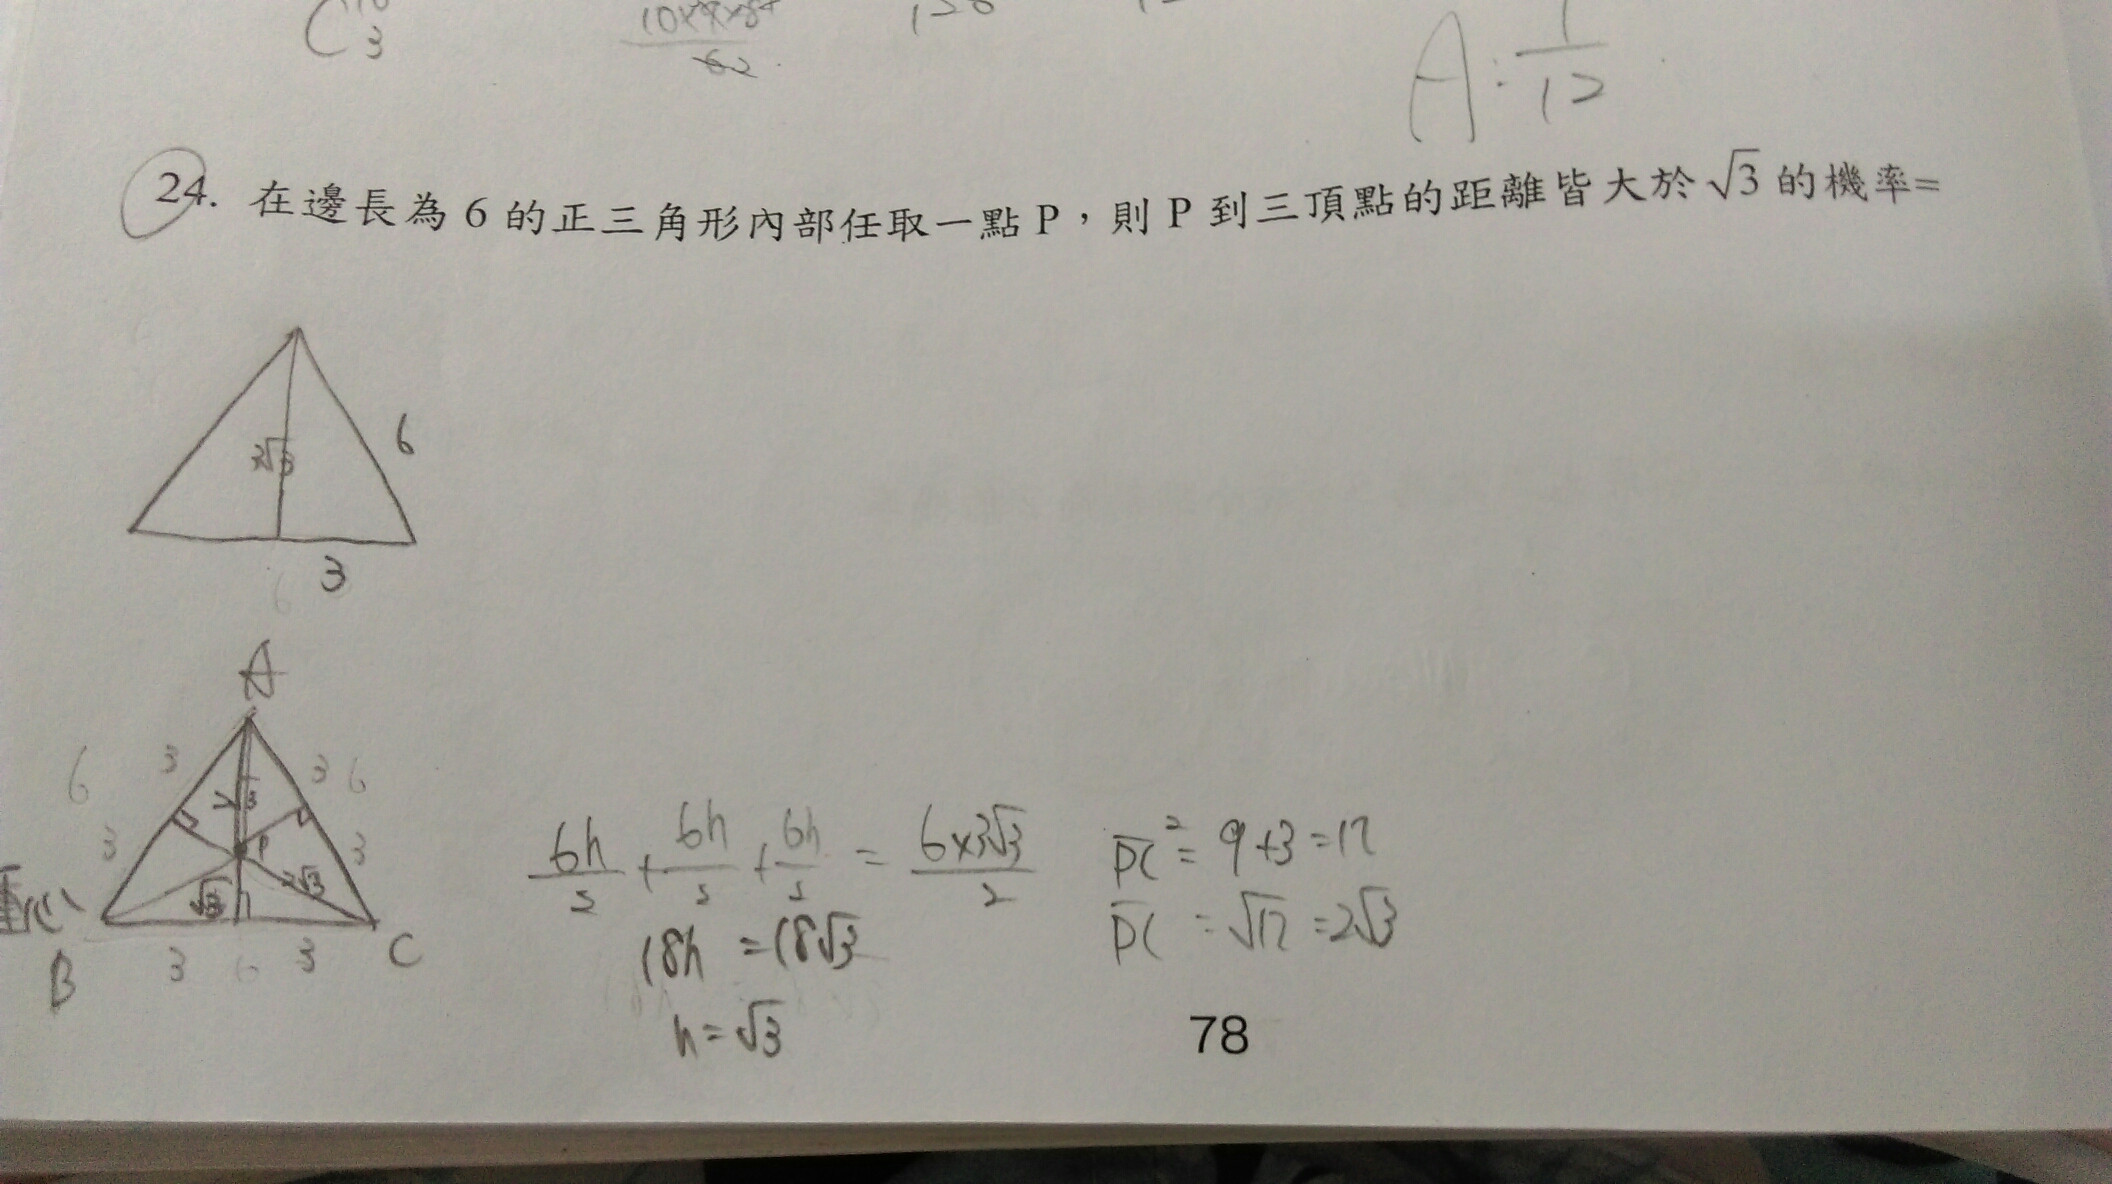 C 10 3
10×9×8 / 62
120
A: 1/12
24. 在邊長為 6 的正三角形內部任取一點 P，則 P 到三頂點的距離皆大於 √3 的機率=
3√3
6
3
6
A
6 3 3 6
2√3
P
3 3
√3 h 2√3
重心
B 3 6 3 C
6h/2 + 6h/2 + 6h/2 = 6×3√3/2
18h = 18√3
h = √3
PC² = 9+3 = 12
PC = √12 = 2√3
78